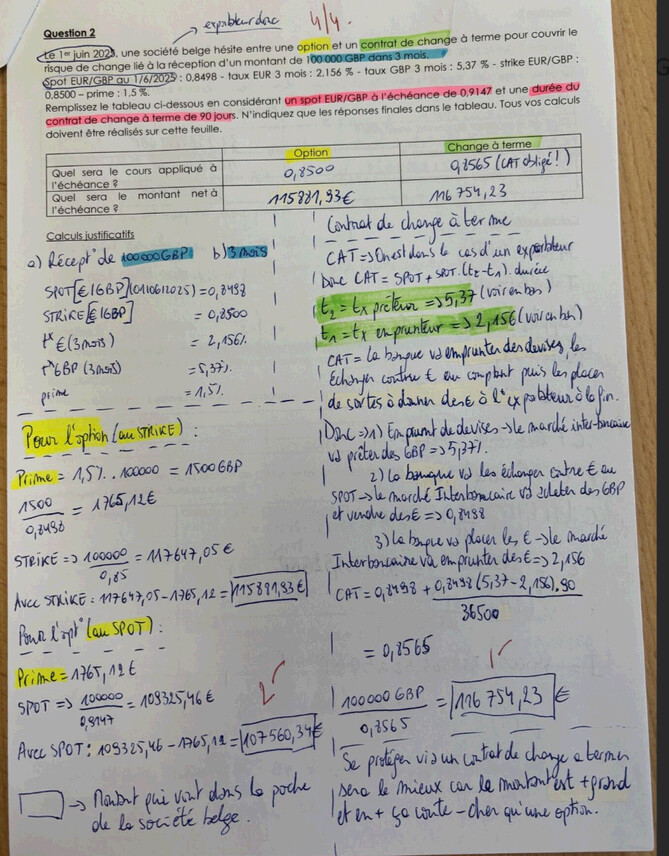 exportateur donc
4/4.
Question 2
Le 1er juin 2025, une société belge hésite entre une option et un contrat de change à terme pour couvrir le
risque de change lié à la réception d'un montant de 100 000 GBP dans 3 mois.
Spot EUR/GBP au 1/6/2025 : 0,8498 - taux EUR 3 mois : 2,156 % - taux GBP 3 mois : 5,37 % - strike EUR/GBP :
0,8500 – prime : 1,5 %.
Remplissez le tableau ci-dessous en considérant un spot EUR/GBP à l'échéance de 0,9147 et une durée du
contrat de change à terme de 90 jours. N'indiquez que les réponses finales dans le tableau. Tous vos calculs
doivent être réalisés sur cette feuille.
Option
Change à terme
Quel sera le cours appliqué à
l'échéance ?
0,8500
0,8565 (CAT obligé!)
Quel sera le montant net à
l'échéance ?
115881,93€
116 754,23
Calculs justificatifs
a) Récept° de 100000GBP b) 3 mois
SPOT[€/GBP](01/06/2025) = 0,8498
STRIKE[€/GBP] = 0,8500
tx €(3mois) = 2,156%
tx GBP (3mois) = 5,37%
prime = 1,5%
Pour l'option (au STRIKE) :
Prime = 1,5% . 100000 = 1500 GBP
1500
0,8498
= 1765,12€
STRIKE => 100000
0,85
= 117647,05€
Avec STRIKE : 117647,05 - 1765,12 = 115881,93€
Pour l'opt° (au SPOT) :
Prime = 1765,12€
SPOT => 100000
0,9147
= 109325,46€
2
Avec SPOT : 109325,46 - 1765,12 = 107560,34€
-> Montant qui vont dans la poche
de la société belge.
Contrat de change à terme
CAT => On est dans le cas d'un exportateur
Donc CAT = SPOT + SPOT . (t2 - t1) . durée
t2 = tx prêteur => 5,37 (voir en bas)
t1 = tx emprunteur => 2,156 (voir en bas)
CAT = la banque va emprunter des devises, les
échanger contre € au comptant puis les placer
de sortes à donner des € à l'exportateur à la fin.
Donc => 1) Emprunt de devises -> le marché inter-bancaire
va prêter des GBP => 5,37%.
2) la banque va les échanger contre € au
SPOT -> le marché Interbancaire va acheter des GBP
et vendre des € => 0,8498
3) la banque va placer les € -> le marché
Interbancaire va emprunter des € => 2,156
CAT = 0,8498 + 0,8498 (5,37 - 2,156) . 90
36500
= 0,8565
1
100000 GBP
0,8565
= 116 754,23 €
Se protéger via un contrat de change a termer
sera le mieux car le montant est + grand
et en + ça coute - cher qu'une option.